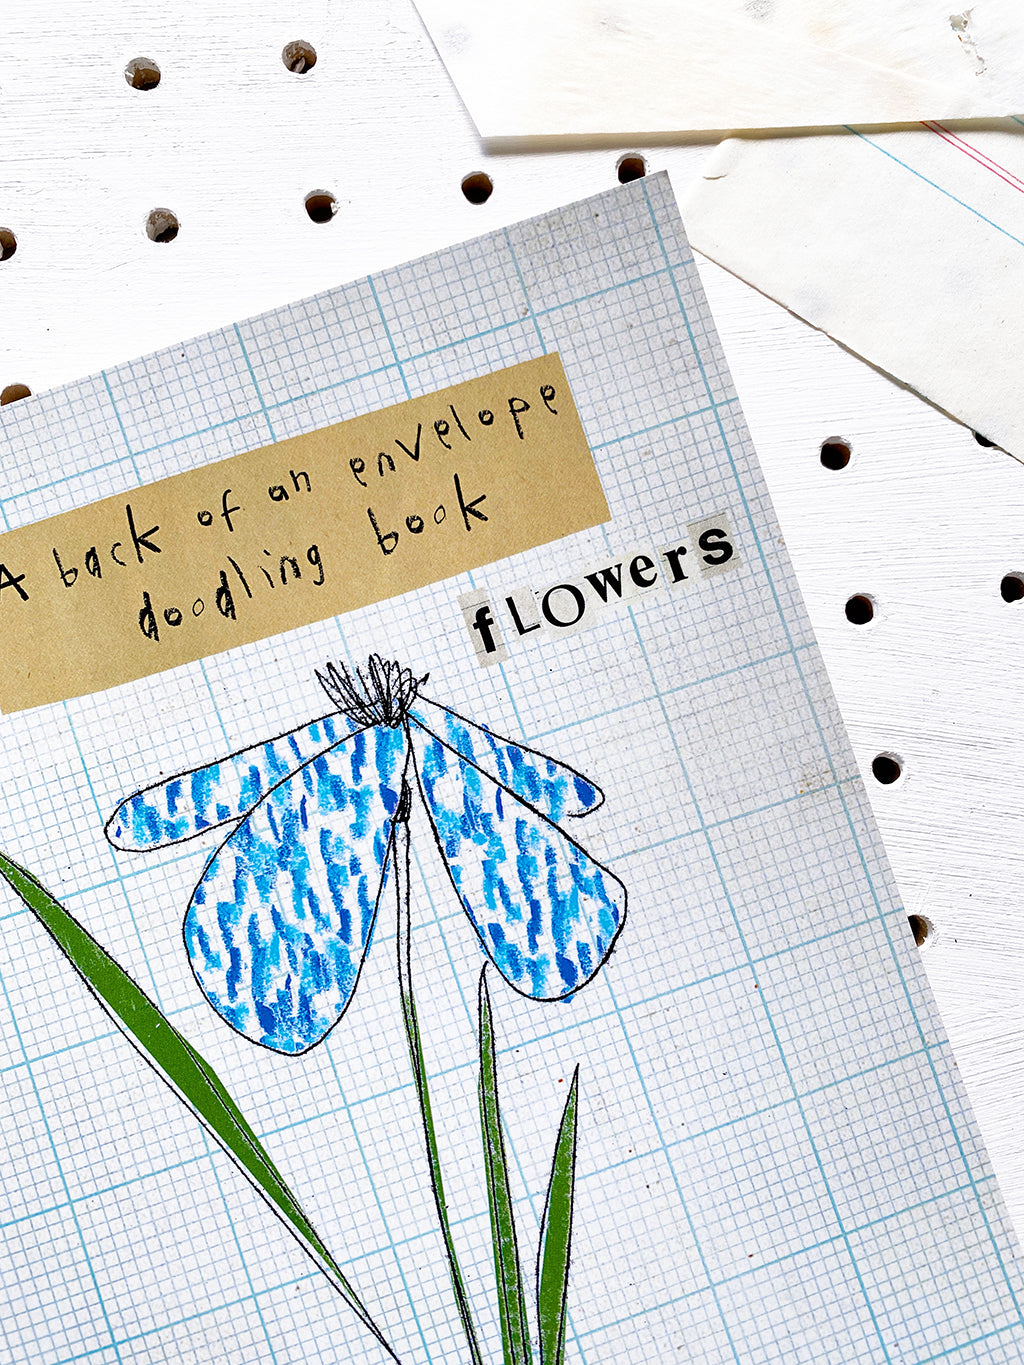 A back of an envelope
doodling book
fLOwers